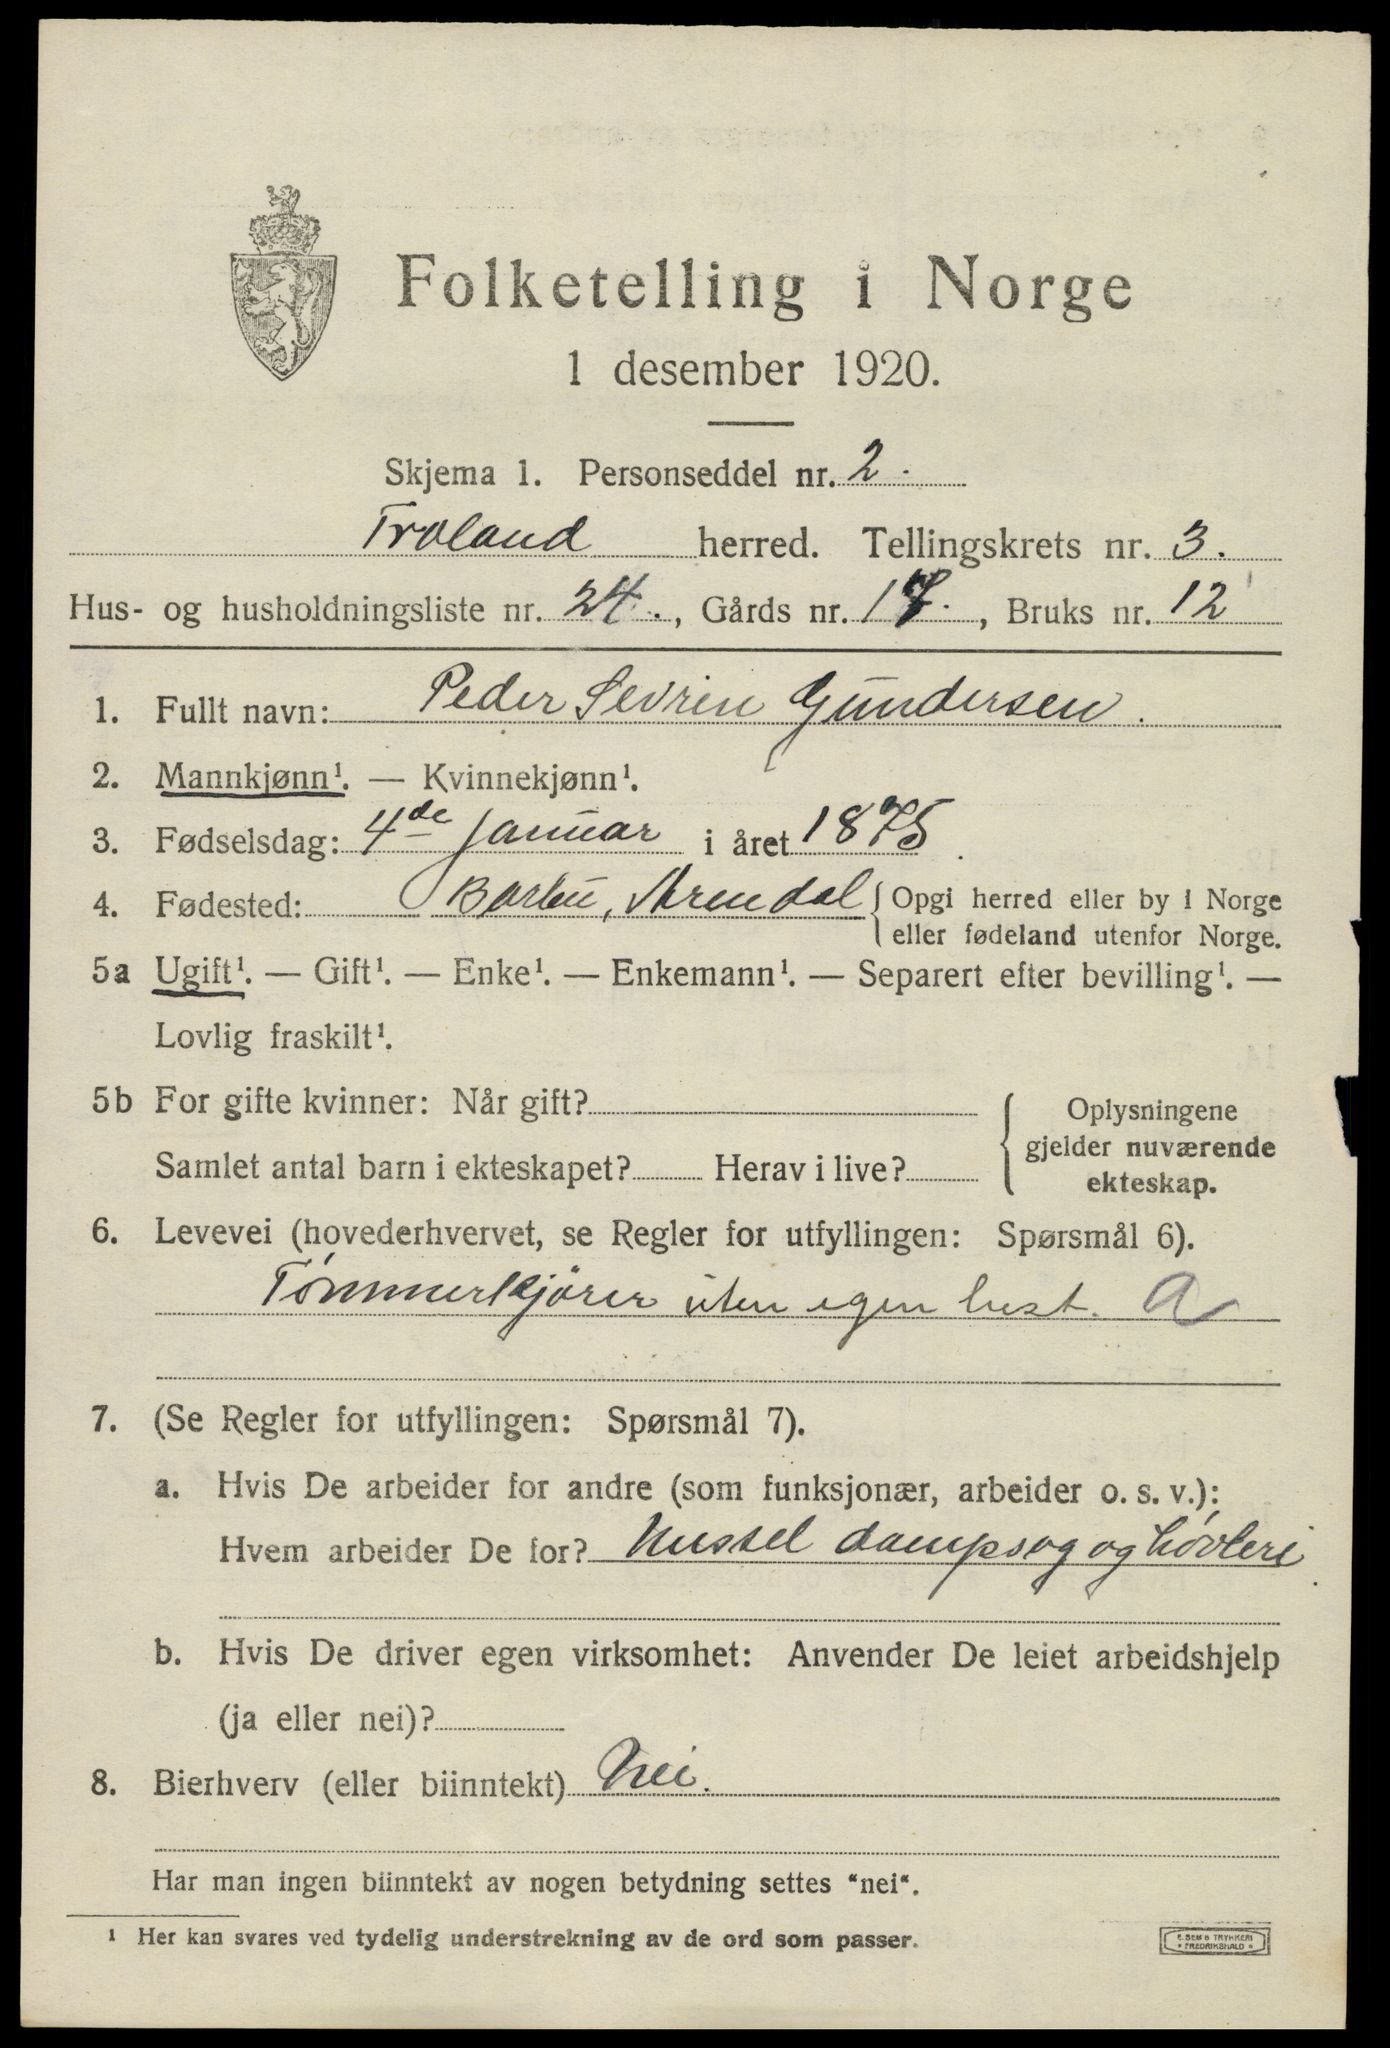 Folketelling i Norge
1 desember 1920.
Skjema 1. Personseddel nr. 2.
Froland herred. Tellingskrets nr. 3.
Hus- og husholdningsliste nr. 24., Gårds nr. 17., Bruks nr. 12
1. Fullt navn: Peder Sevrin Gundersen.
2. Mannkjønn¹. — Kvinnekjønn¹.
3. Fødselsdag: 4de januar i året 1875.
4. Fødested: Barbu, Arendal { Opgi herred eller by i Norge
eller fødeland utenfor Norge.
5a Ugift¹. — Gift¹. — Enke¹. — Enkemann¹. — Separert efter bevilling¹. —
Lovlig fraskilt¹.
5b For gifte kvinner: Når gift? { Oplysningene
gjelder nuværende
Samlet antal barn i ekteskapet? Herav i live? ekteskap.
6. Levevei (hovederhvervet, se Regler for utfyllingen: Spørsmål 6).
Tømmerkjörer uten egen hest. a
7. (Se Regler for utfyllingen: Spørsmål 7).
a. Hvis De arbeider for andre (som funksjonær, arbeider o. s. v.):
Hvem arbeider De for? dampsag og høvleri
b. Hvis De driver egen virksomhet: Anvender De leiet arbeidshjelp
(ja eller nei)?
8. Bierhverv (eller biinntekt) Nei.
Har man ingen biinntekt av nogen betydning settes "nei".
¹ Her kan svares ved tydelig understrekning av de ord som passer.
E. SEM'S TRYKKERI
* FREDRIKSHALD *